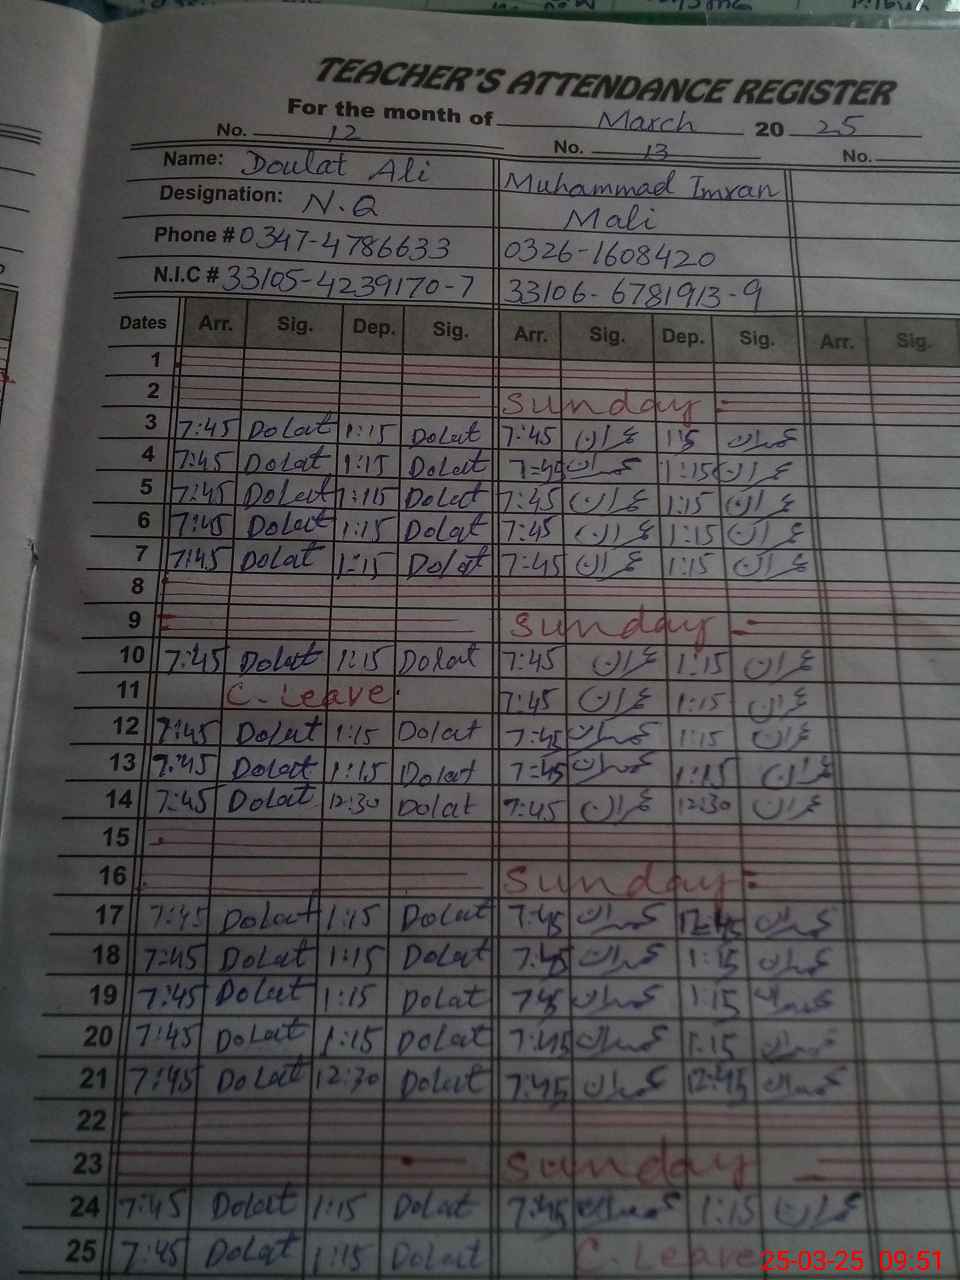 TEACHER'S ATTENDANCE REGISTER
For the month of March 20 25
No. 12 No. 13 No.
Name: Doulat Ali Muhammad Imran
Designation: N.Q Mali
Phone # 0347-4786633 0326-1608420
N.I.C # 33105-4239170-7 33106-6781913-9
Dates Arr. Sig. Dep. Sig. Arr. Sig. Dep. Sig. Arr. Sig.
1
2 Sunday
3 7:45 Dolat 1:15 Dolat 7:45 عمران 1:15 عمران
4 7:45 Dolat 1:15 Dolat 7:45 عمران 1:15 عمران
5 7:45 Dolat 1:15 Dolat 7:45 عمران 1:15 عمران
6 7:45 Dolat 1:15 Dolat 7:45 عمران 1:15 عمران
7 7:45 Dolat 1:15 Dolat 7:45 عمران 1:15 عمران
8
9 Sunday
10 7:45 Dolat 1:15 Dolat 7:45 عمران 1:15 عمران
11 C.Leave 7:45 عمران 1:15 عمران
12 7:45 Dolat 1:15 Dolat 7:45 عمران 1:15 عمران
13 7:45 Dolat 1:15 Dolat 7:45 عمران 1:15 عمران
14 7:45 Dolat 12:30 Dolat 7:45 عمران 12:30 عمران
15
16 Sunday
17 7:45 Dolat 1:15 Dolat 7:45 عمران 12:45 عمران
18 7:45 Dolat 1:15 Dolat 7:45 عمران 1:15 عمران
19 7:45 Dolat 1:15 Dolat 745 عمران 1:15 عمران
20 7:45 Dolat 1:15 Dolat 7:45 عمران 1:15 عمران
21 7:45 Dolat 12:30 Dolat 7:45 عمران 12:45 عمران
22
23 Sunday
24 7:45 Dolat 1:15 Dolat 7:45 عمران 1:15 عمران
25 7:45 Dolat 1:15 Dolat C.Leave
25-03-25 09:51